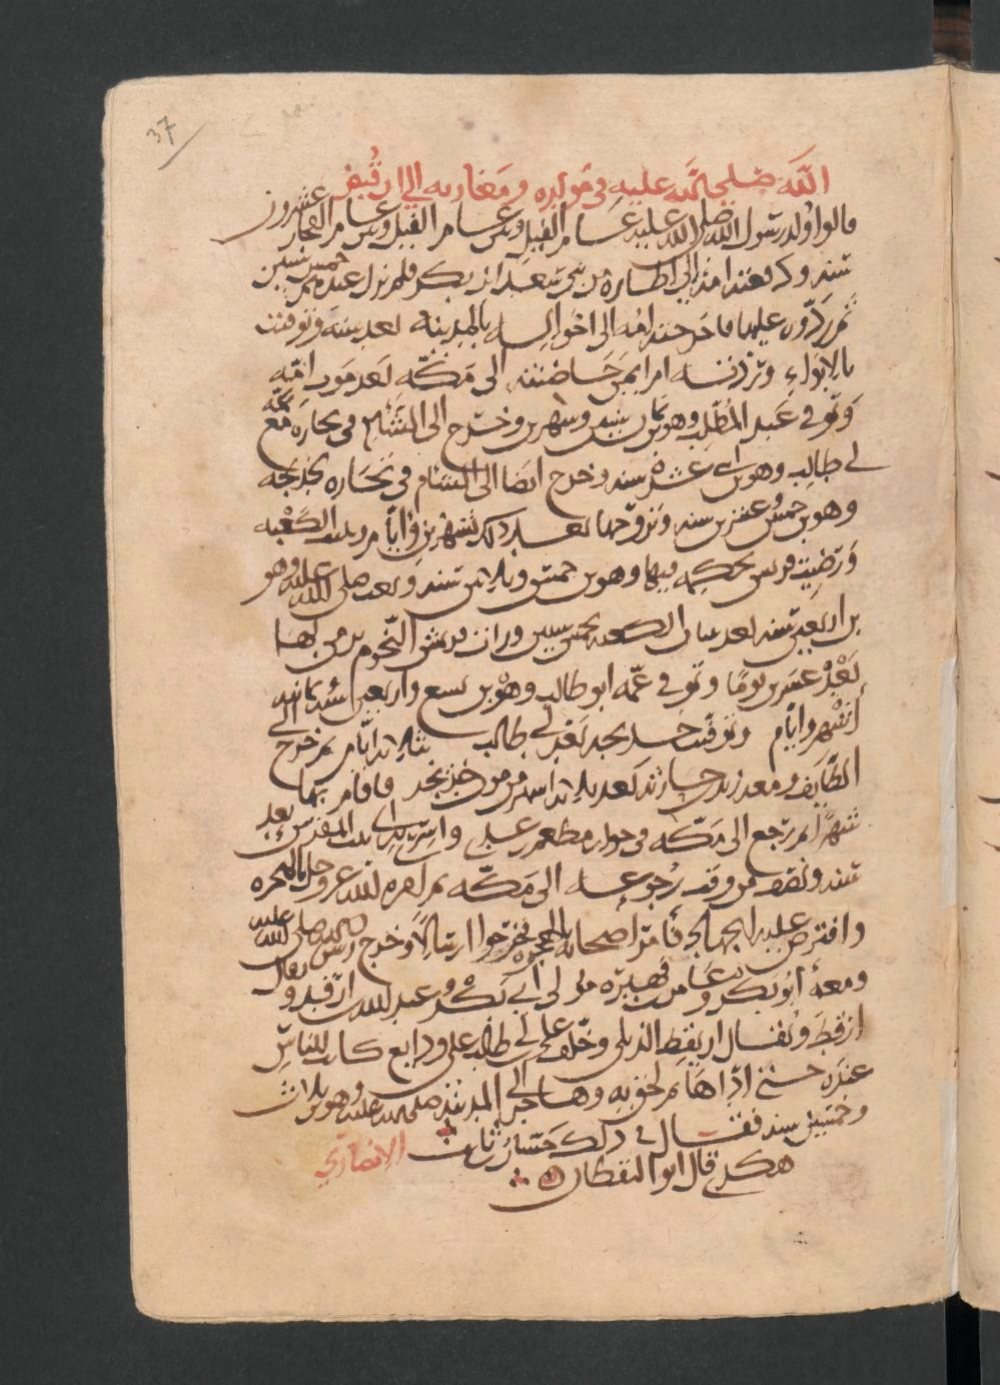 37
الله صلى الله عليه في مولده ومغازيه إلى أن قبض
قالوا ولد رسول الله صلى الله عليه عام الفيل وبين عام الفيل وبين عام الفجار عشرون
سنة وكـ بعثته امه إلى اظآره من بني سعد ابن بكر فلم يزل عندهم خمس سنين
ثم ردوه عليها فاخرجته امه الى اخواله بالمدينة بعد سنة وتوفيت
بالابواء وردته ام ايمن حاضنته الى مكة بعد موت امه
وتوفي عبد المطلب وهو بن ثمان سنين وشهرين وخرج الى الشام في تجارة مع عمه
ابي طالب وهو بن عشرة سنة وخرج ايضا الى الشام في تجارة لخديجة
وهو بن خمس وعشرين سنة وتزوجها بعد ذلك بشهرين وايام وبنيت الكعبة
ورضيت قريش بحكمه فيها وهو بن خمس وثلاثين سنة وبعث صلى الله عليه وهو
بن اربعين سنة بعد بنيان الكعبة بخمس سنين ورات قريش النجوم يرمى بها
بعد عشرين يوما وتوفي عمه ابو طالب وهو بن تسع واربعين سنة وثمانية
اشهر وايام وتوفيت خديجة بعد ابي طالب بثلاثة ايام ثم خرج الى
الطايف ومعه زيد بن حارثة بعد ثلاثة اشهر من موت خديجة فاقام بها
شهرا ثم رجع الى مكة في جوار مطعم بن عدي واسري به الى بيت المقدس بعد
سنة ونصف من وقت رجوعه الى مكة ثم امره الله عز وجل بالهجرة
وافترض عليه الجهاد فأمر اصحابه بالهجرة فخرجوا ارسالا وخرج رسول الله صلى الله عليه
ومعه ابو بكر وعامر بن فهيرة مولى ابي بكر وعبد الله بن ارقد ويقال
ارقط ويقال اريقط الديلي وخلف علي بن ابي طالب على ودايع كانت للناس
عنده حتى اداها ثم لحق به وهاجر الى المدينة صلى الله عليه وهو بن ثلاث
وخمسين سنة فقال في ذلك حسان بن ثابت الانصاري
هكذي قال ابو اليقظان